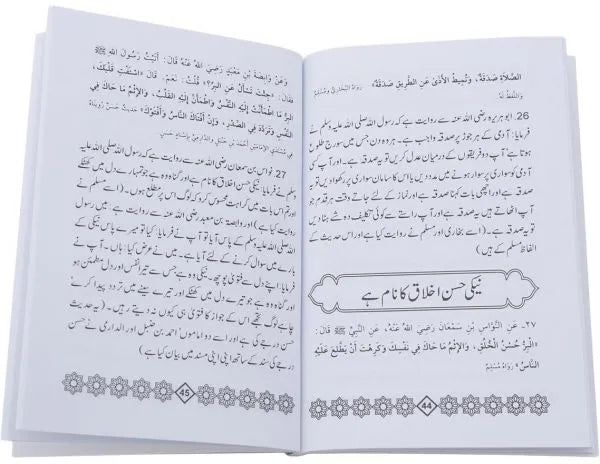 الصَّلَاةِ صَدَقَةٌ، وَتُمِيطُ الْأَذَى عَنِ الطَّرِيقِ صَدَقَةٌ» رَوَاهُ الْبُخَارِيُّ وَمُسْلِمٌ
وَاللَّفْظُ لَهُ
26 ابو ہریرہ رضی اللہ عنہ سے روایت ہے کہ رسول اللہ صلی اللہ علیہ وسلم نے
فرمایا: آدمی کے ہر جوڑ پر صدقہ واجب ہے۔ ہر وہ دن جس میں سورج طلوع
ہوتا ہے' آپ دو فریقوں کے درمیان عدل کریں تو یہ صدقہ ہے۔ اور آپ کسی
آدمی کو سواری پر سوار ہونے میں مدد دیں یا اس کا سامان سواری پر رکھوا دیں تو یہ
صدقہ ہے اور اچھی بات کہنا صدقہ ہے اور نماز کے لئے جاتے وقت ہر قدم جو
آپ اٹھاتے ہیں یہ صدقہ ہے اور آپ راستے سے کوئی تکلیف دہ شے ہٹا دیں
تو یہ صدقہ ہے۔ (اسے بخاری اور مسلم نے روایت کیا ہے اور اس حدیث کے
الفاظ مسلم کے ہیں)
نیکی حسن اخلاق کا نام ہے
٢٧- عَنِ النَّوَّاسِ بْنِ سَمْعَانَ رَضِيَ اللهُ عَنْهُ، عَنِ النَّبِيِّ ﷺ قَالَ:
«الْبِرُّ حُسْنُ الْخُلُقِ، وَالْإِثْمُ مَا حَاكَ فِي نَفْسِكَ وَكَرِهْتَ أَنْ يَطَّلِعَ عَلَيْهِ
النَّاسُ» رَوَاهُ مُسْلِمٌ
44
وَعَنْ وَابِصَةَ بْنِ مَعْبَدٍ رَضِيَ اللهُ عَنْهُ قَالَ: أَتَيْتُ رَسُولَ اللهِ ﷺ
فَقَالَ: «جِئْتَ تَسْأَلُ عَنِ الْبِرِّ؟» قُلْتُ: نَعَمْ. قَالَ: «اسْتَفْتِ قَلْبَكَ،
الْبِرُّ مَا اطْمَأَنَّتْ إِلَيْهِ النَّفْسُ وَاطْمَأَنَّ إِلَيْهِ الْقَلْبُ، وَالْإِثْمُ مَا حَاكَ فِي
النَّفْسِ وَتَرَدَّدَ فِي الصَّدْرِ، وَإِنْ أَفْتَاكَ النَّاسُ وَأَفْتَوْكَ» حَدِيثٌ حَسَنٌ رَوَيْنَاهُ
فِي مُسْنَدَيِ الْإِمَامَيْنِ أَحْمَدَ بْنِ حَنْبَلٍ وَالدَّارِمِيِّ بِإِسْنَادٍ حَسَنٍ
27. نواس بن سمعان رضی اللہ عنہ سے روایت ہے کہ رسول اللہ صلی اللہ علیہ
وسلم نے فرمایا: نیکی حسن اخلاق کا نام ہے اور گناہ وہ ہے جو تمہارے دل میں کھٹکے
اور تم اس بات میں کراہت محسوس کرو کہ لوگ اس پر مطلع ہوں۔ (اسے مسلم نے
روایت کیا ہے) اور وابصۃ بن معبد رضی اللہ عنہ سے روایت ہے۔ میں رسول
اللہ صلی اللہ علیہ وسلم کے پاس آیا تو آپ نے فرمایا: کیا تو میرے پاس نیکی کے
بارے میں سوال کرنے کے لئے آیا ہے۔ میں نے عرض کیا: ہاں۔ آپ نے
فرمایا: اپنے دل سے فتوی پوچھ۔ نیکی وہ ہے جس سے تیرا نفس اور دل مطمئن ہو
اور گناہ وہ ہے جو تیرے دل میں کھٹکے اور تیرے سینے میں تردد پیدا کرے'
چاہے لوگ تجھے اس کے جواز کا فتوی ہی کیوں نہ دیتے رہیں۔ (یہ حدیث
حسن درجے کی ہے اور اسے دو اماموں' احمد بن حنبل اور الدارمی نے حسن
درجے کی سند کے ساتھ اپنی اپنی مسند میں بیان کیا ہے)
45